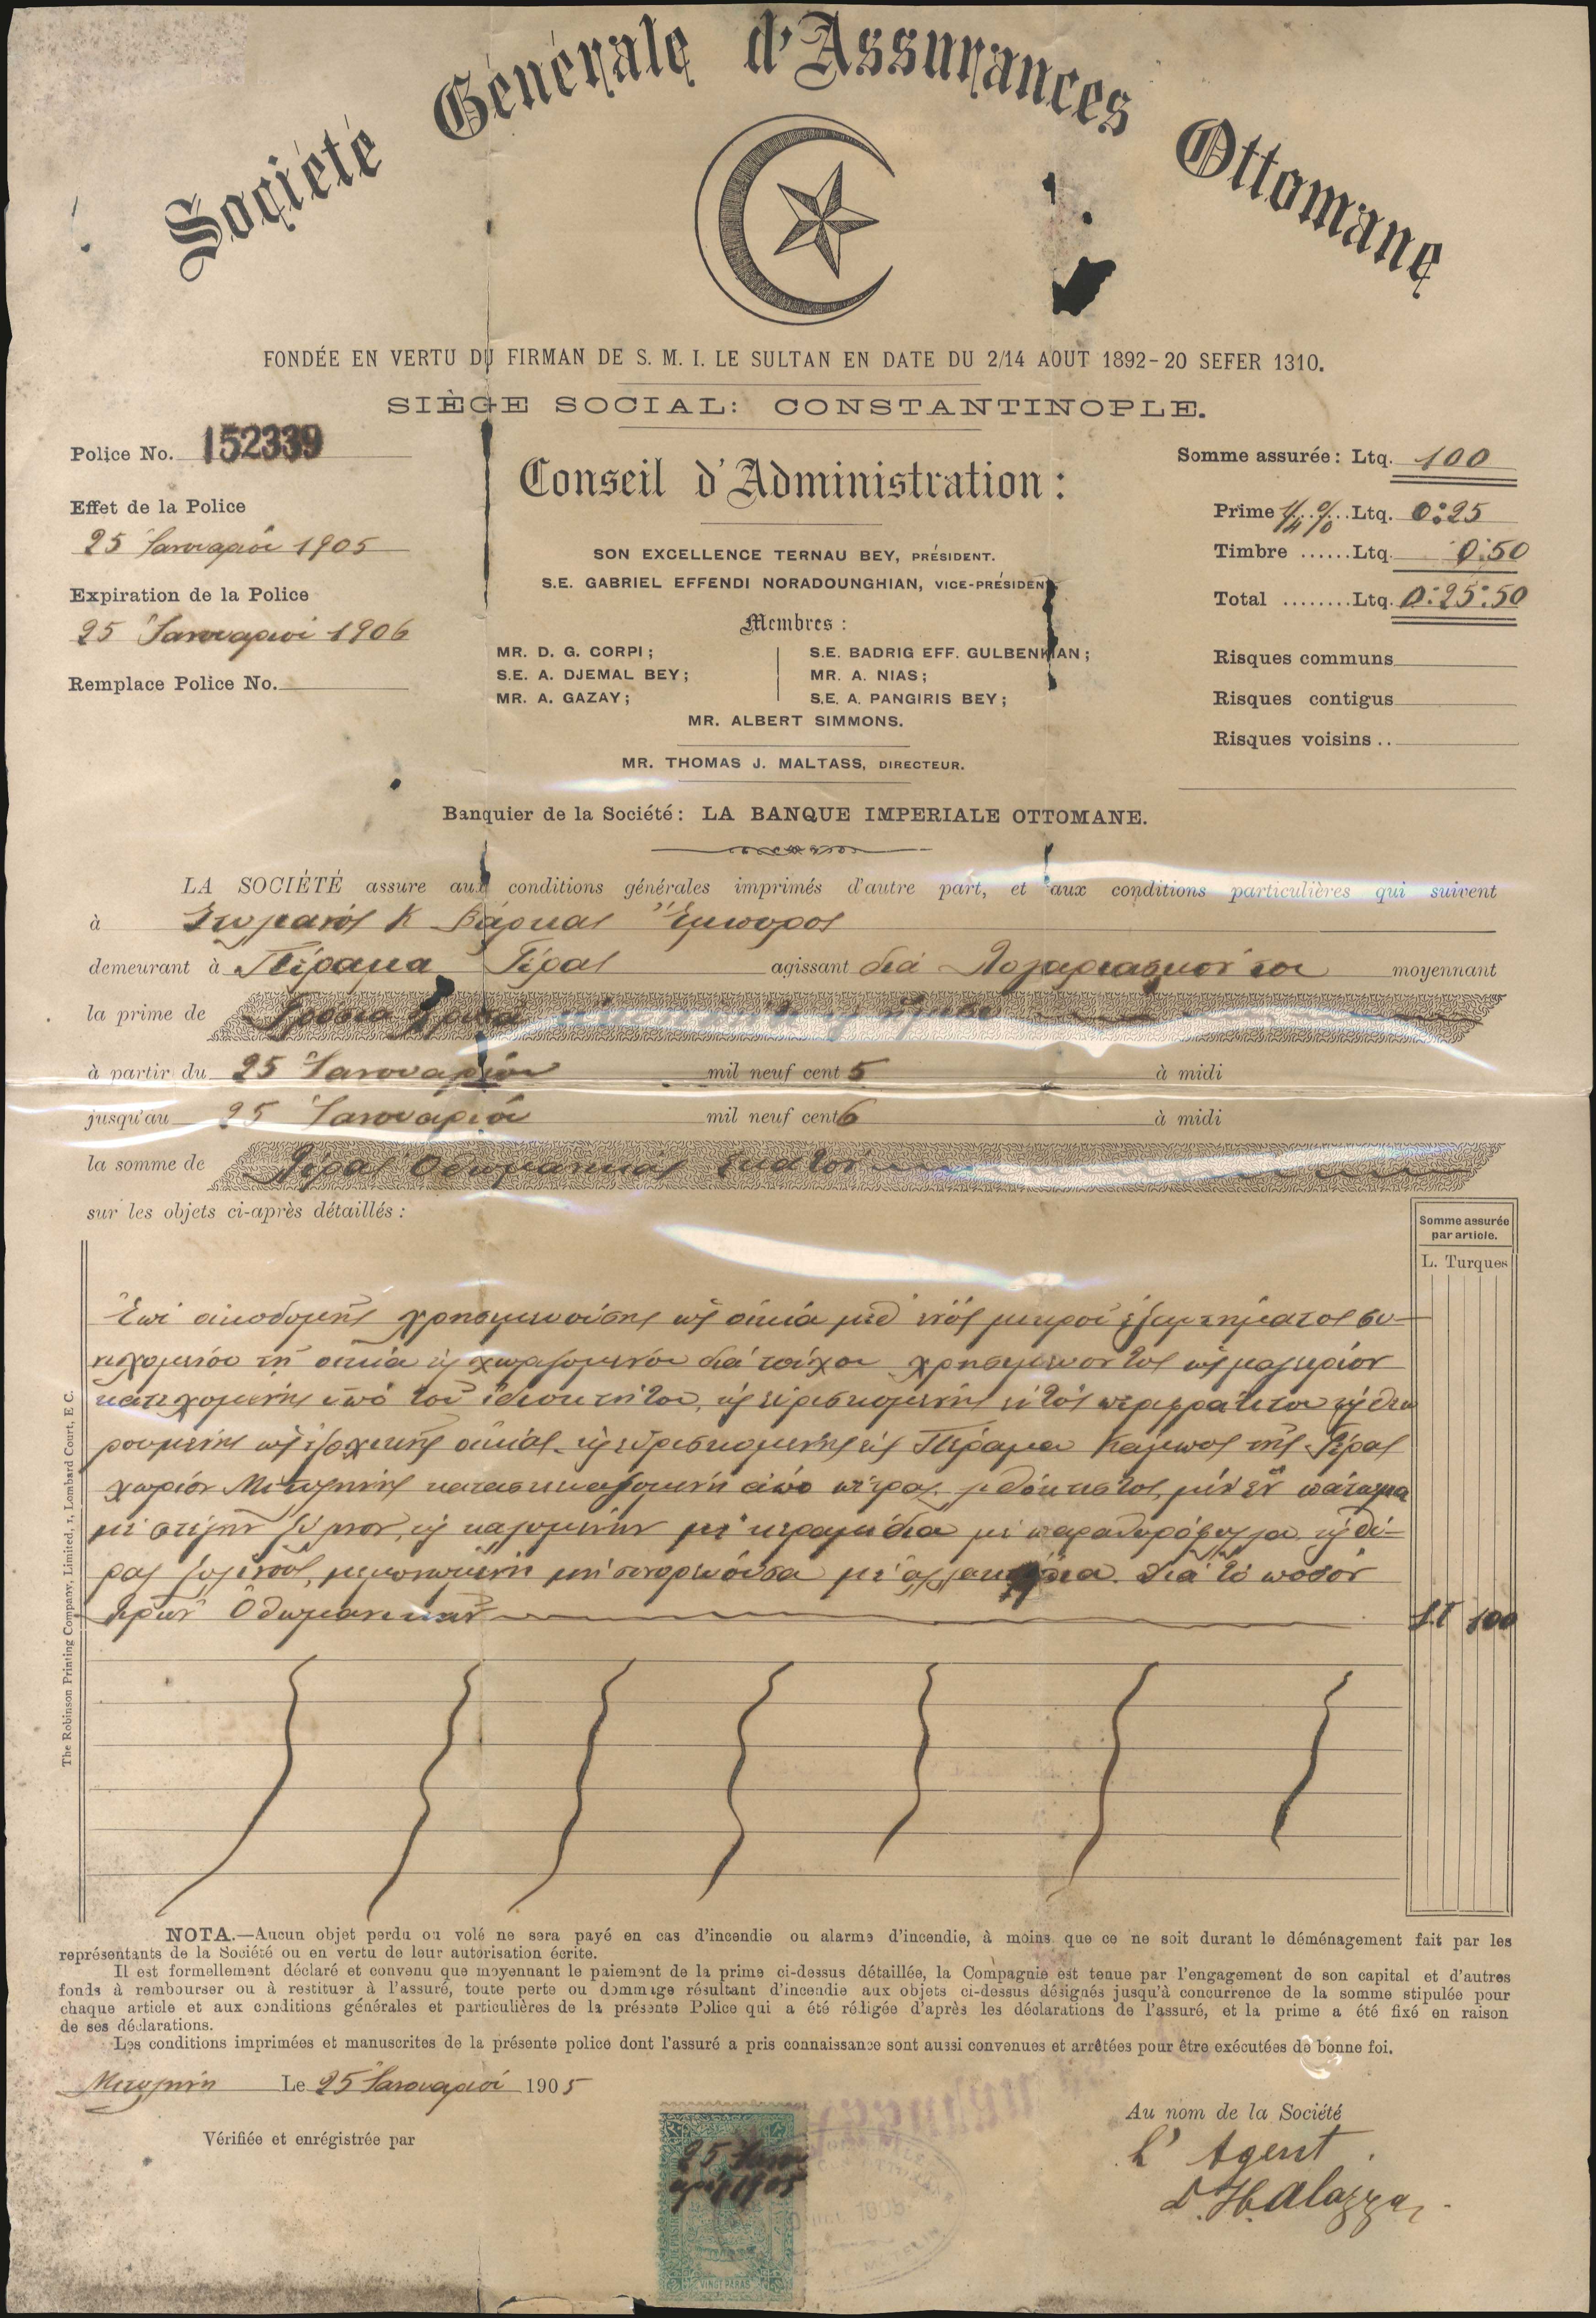 Société Générale d'Assurances Ottomane
FONDÉE EN VERTU DU FIRMAN DE S. M. I. LE SULTAN EN DATE DU 2/14 AOUT 1892-20 SEFER 1310.
SIÈGE SOCIAL: CONSTANTINOPLE.
Police No. 152339
Effet de la Police
25 Ιανουαρίου 1905
Expiration de la Police
25 Ιανουαρίου 1906
Remplace Police No.
Conseil d'Administration:
SON EXCELLENCE TERNAU BEY, PRÉSIDENT.
S.E. GABRIEL EFFENDI NORADOUNGHIAN, VICE-PRÉSIDENT.
Membres:
MR. D. G. CORPI;
S.E. A. DJEMAL BEY;
MR. A. GAZAY;
S.E. BADRIG EFF. GULBENKIAN;
MR. A. NIAS;
S.E. A. PANGIRIS BEY;
MR. ALBERT SIMMONS.
MR. THOMAS J. MALTASS, DIRECTEUR.
Banquier de la Société: LA BANQUE IMPERIALE OTTOMANE.
Somme assurée: Ltq. 100
Prime 1/4 % Ltq. 0:25
Timbre ......Ltq. 0:50
Total ........Ltq. 0:25:50
Risques communs
Risques contigus
Risques voisins ..
LA SOCIÉTÉ assure aux conditions générales imprimés d'autre part, et aux conditions particulières qui suivent
à Κ Έμπορος
demeurant à Πέραμα Γέρας agissant διά Λογαριασμόν του moyennant
la prime de Γρόσια
à partir du 25 Ιανουαρίου mil neuf cent 5 à midi
jusqu'au 25 Ιανουαρίου mil neuf cent 6 à midi
la somme de Λίρας Οθωμανικάς εκατόν
sur les objets ci-après détaillés:
Somme assurée
par article.
L. Turques
Επί οικοδομής χρησιμευούσης ως οικία μεθ' ενός μικρού εξαρτήματος συ-
νεχομένου τη οικία χωριζομένου διά τοίχου χρησιμεύοντος ως μαγειρίον
κατεχομένης υπό του ιδιοκτήτου, ευρισκομένης εντός
ρουμένης ως εξοχικής οικίας ευρισκομένης εις Πέραμα της Γέρας
χωρίον Μιτυλήνης από πέτρας με έν πάτωμα
με στέγην ξύλινον, με κεραμίδια με παραθυρόφυλλα θύ-
ρας ξυλίνους, μη συνορεύουσα με Διά το ποσόν
Λιρών Οθωμανικών LT 100
The Robinson Printing Company, Limited, 1, Lombard Court, E C.
NOTA.—Aucun objet perdu ou volé ne sera payé en cas d'incendie ou alarme d'incendie, à moins que ce ne soit durant le déménagement fait par les
représentants de la Société ou en vertu de leur autorisation écrite.
Il est formellement déclaré et convenu que moyennant le paiement de la prime ci-dessus détaillée, la Compagnie est tenue par l'engagement de son capital et d'autres
fonds à rembourser ou à restituer à l'assuré, toute perte ou dommage résultant d'incendie aux objets ci-dessus désignés jusqu'à concurrence de la somme stipulée pour
chaque article et aux conditions générales et particulières de la présente Police qui a été rédigée d'après les déclarations de l'assuré, et la prime a été fixé en raison
de ses déclarations.
Les conditions imprimées et manuscrites de la présente police dont l'assuré a pris connaissance sont aussi convenues et arrêtées pour être exécutées de bonne foi.
Μιτυλήνη Le 25 Ιανουαρίου 1905
Vérifiée et enrégistrée par
25 Ιανου
αρίου 1905
VINGT PARAS
Au nom de la Société
L' Agent